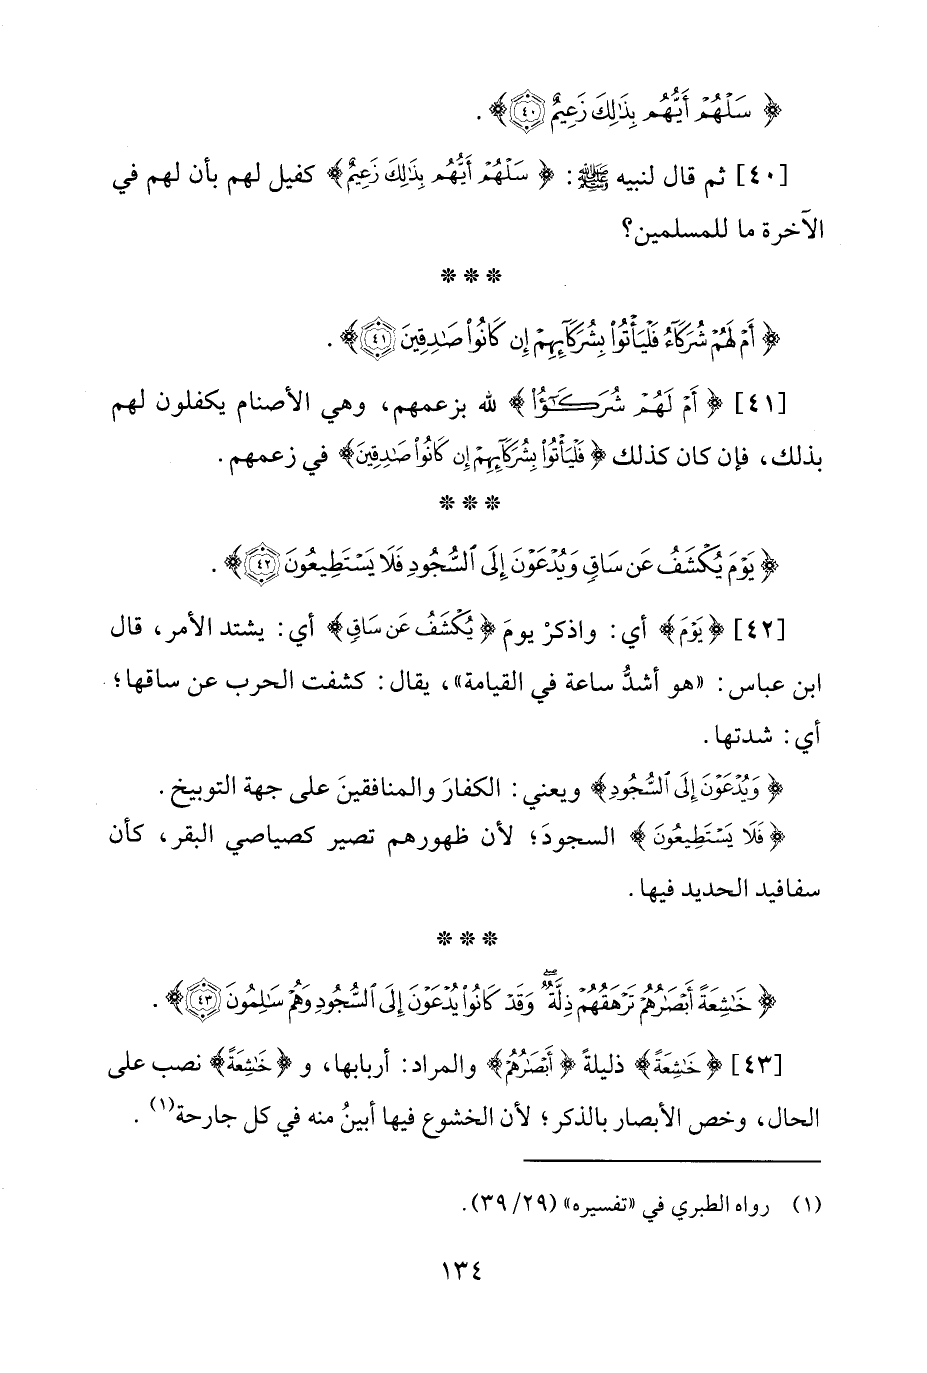 ﴿ سَلْهُمْ أَيُّهُم بِذَٰلِكَ زَعِيمٌ ﴿٤٠﴾ ﴾ .
[٤٠] ثم قال لنبيه ﷺ : ﴿ سَلْهُمْ أَيُّهُم بِذَٰلِكَ زَعِيمٌ ﴾ كفيل لهم بأن لهم في
الآخرة ما للمسلمين؟
* * *
﴿ أَمْ لَهُمْ شُرَكَآءُ فَلْيَأْتُوا۟ بِشُرَكَآئِهِمْ إِن كَانُوا۟ صَٰدِقِينَ ﴿٤١﴾ ﴾ .
[٤١] ﴿ أَمْ لَهُمْ شُرَكَٰٓؤُا۟ ﴾ لله بزعمهم، وهي الأصنام يكفلون لهم
بذلك، فإن كان كذلك ﴿ فَلْيَأْتُوا۟ بِشُرَكَآئِهِمْ إِن كَانُوا۟ صَٰدِقِينَ ﴾ في زعمهم.
* * *
﴿ يَوْمَ يُكْشَفُ عَن سَاقٍ وَيُدْعَوْنَ إِلَى ٱلسُّجُودِ فَلَا يَسْتَطِيعُونَ ﴿٤٢﴾ ﴾ .
[٤٢] ﴿ يَوْمَ ﴾ أي: واذكرْ يومَ ﴿ يُكْشَفُ عَن سَاقٍ ﴾ أي: يشتد الأمر، قال
ابن عباس: «هو أشدُّ ساعة في القيامة»، يقال: كشفت الحرب عن ساقها؛
أي: شدتها.
﴿ وَيُدْعَوْنَ إِلَى ٱلسُّجُودِ ﴾ ويعني: الكفارَ والمنافقينَ على جهة التوبيخ.
﴿ فَلَا يَسْتَطِيعُونَ ﴾ السجودَ؛ لأن ظهورهم تصير كصياصي البقر، كأن
سفافيد الحديد فيها.
* * *
﴿ خَٰشِعَةً أَبْصَٰرُهُمْ تَرْهَقُهُمْ ذِلَّةٌ ۖ وَقَدْ كَانُوا۟ يُدْعَوْنَ إِلَى ٱلسُّجُودِ وَهُمْ سَٰلِمُونَ ﴿٤٣﴾ ﴾ .
[٤٣] ﴿ خَٰشِعَةً ﴾ ذليلةً ﴿ أَبْصَٰرُهُمْ ﴾ والمراد: أربابها، و ﴿ خَٰشِعَةً ﴾ نصب على
الحال، وخص الأبصار بالذكر؛ لأن الخشوع فيها أبينُ منه في كل جارحة(١) .
(١) رواه الطبري في «تفسيره» (٢٩/ ٣٩).
١٣٤